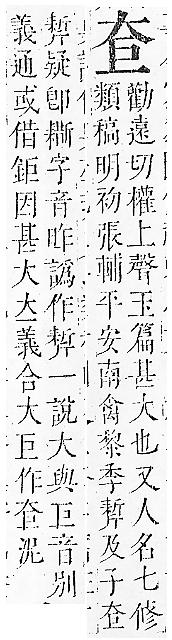 勸遠切權上聲玉篇甚大也又人名七修
類稿明初張輔平安南禽黎季犛及子
犛疑卽斄字音昨譌作犛一說大與巨音別
義通或借鉅因甚大大義合大巨作況